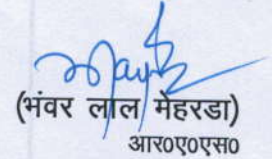 (भंवर लाल मेहरडा)
आर०ए०एस०